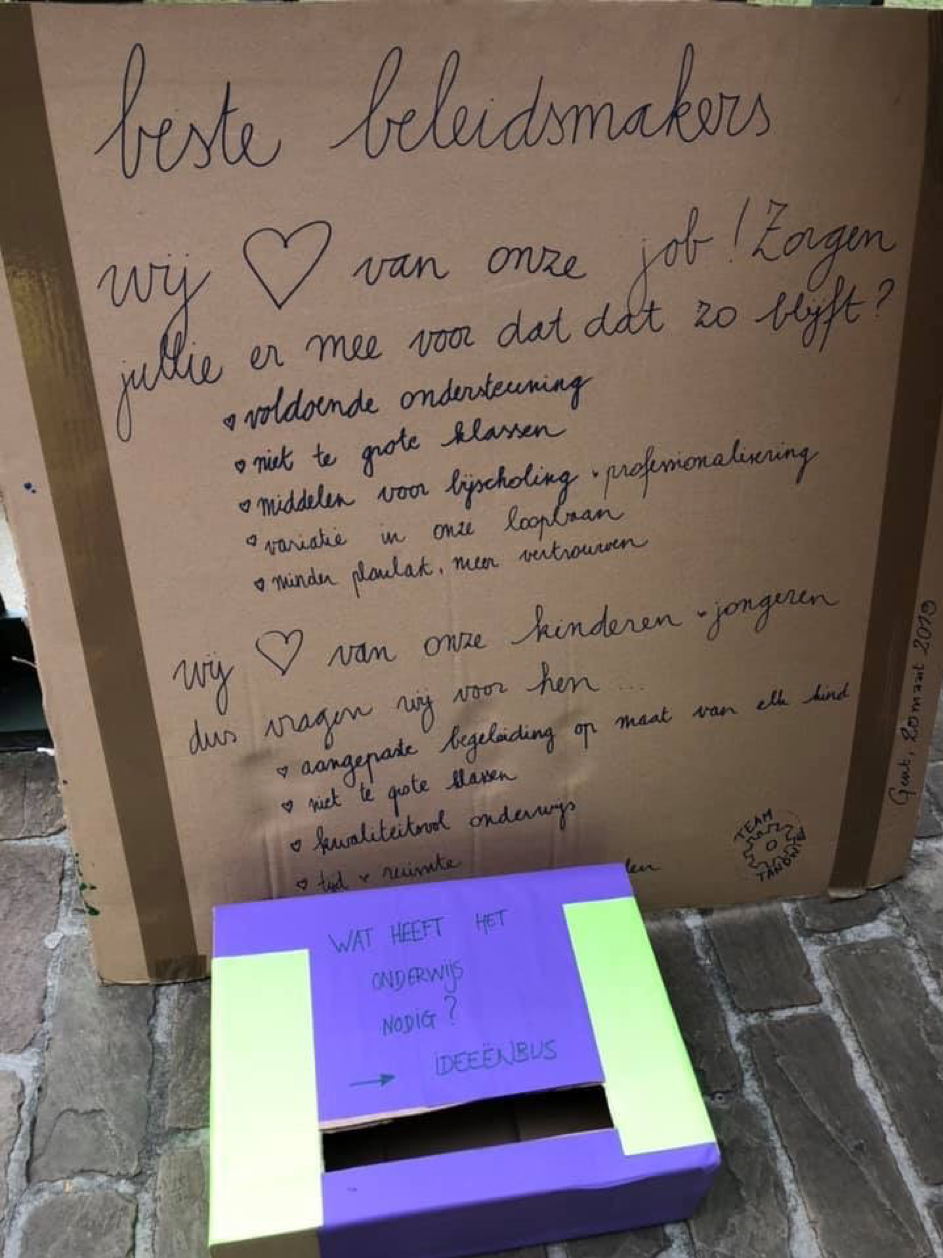 beste beleidsmakers
wij ♡ van onze job! Zorgen
jullie er mee voor dat dat zo blijft?
♡ voldoende ondersteuning
♡ niet te grote klassen
♡ middelen voor bijscholing + professionalisering
♡ variatie in onze loopbaan
♡ minder planlast, meer vertrouwen
wij ♡ van onze kinderen + jongeren
dus vragen wij voor hen ...
♡ aangepaste begeleiding op maat van elk kind
♡ niet te grote klassen
♡ kwaliteitsvol onderwijs
♡ tijd + ruimte
Gent, 20 maart 2019
TEAM
TANDWIEL
WAT HEEFT HET
ONDERWIJS
NODIG?
→ IDEEËNBUS